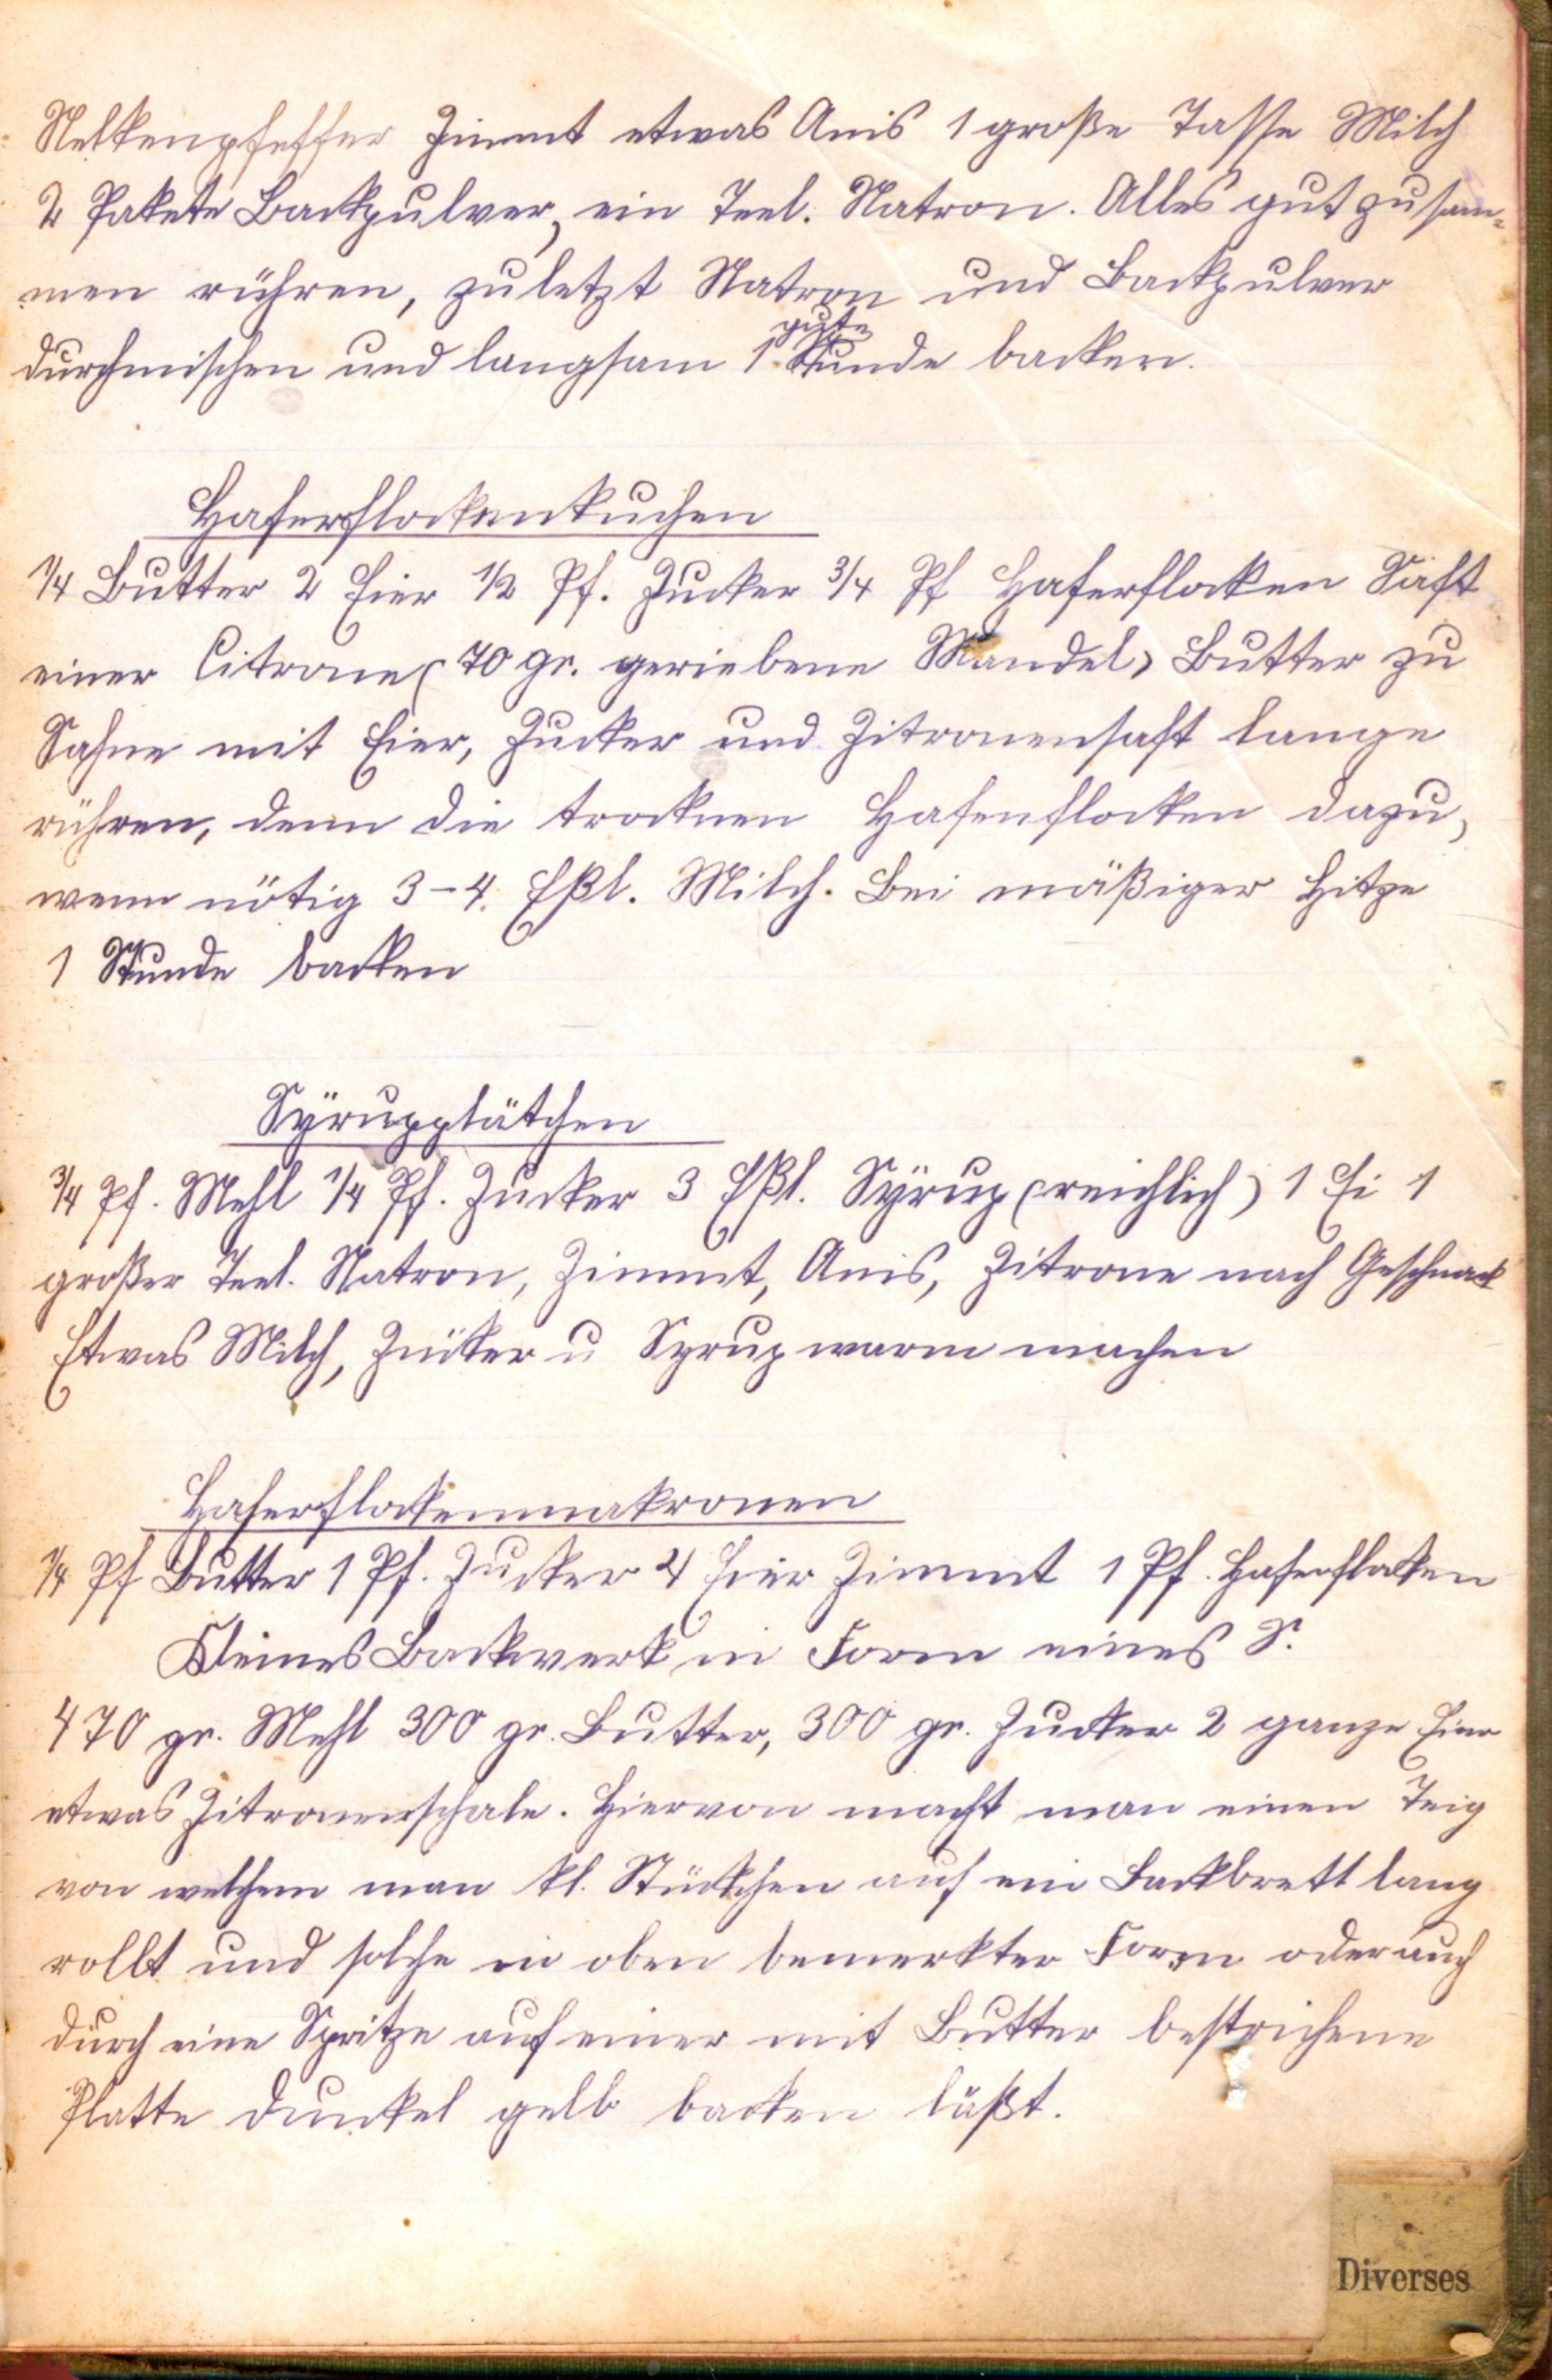 Nelkenpfeffer Zimmt etwas Anis 1 große Tasse Milch
2 Pakete Backpulver, ein Teel. Natron. Alles gut zusam-
men rühren, zuletzt Natron und Backpulver
durchmischen und langsam 1 gute Stunde backen.
Haferflockenkuchen
1/4 Butter 2 Eier 1/2 Pf. Zucker 3/4 Pf Haferflocken Saft
einer Citrone (70 gr. geriebene Mandel) Butter zu
Sahne mit Eier, Zucker und Zitronensaft lange
rühren, denn die trocknen Hafenflocken dazu,
wenn nötig 3-4 Eßl. Milch. Bei mäßiger Hitze
1 Stunde backen
Syrupplätchen
3/4 Pf. Mehl 1/4 Pf. Zucker 3 Eßl. Syrup (reichlich) 1 Ei 1
großer Teel. Natron, Zimmt, Anis, Zitrone nach Geschmack
Etwas Milch, Zucker u Syrup warm machen
Haferflockenmakronen
1/4 Pf Butter 1 Pf. Zucker 4 Eier Zimmt 1 Pf. Haferflocken
Kleines Backwerk in Form eines S.
470 gr. Mehl 300 gr. Butter, 300 gr. Zucker 2 ganze Eier
etwas Zitronenschale. Hiervon macht man einen Teig
von welchem man kl. Stückchen auf ein Backbrett lang
rollt und solche in oben bemerkter Form oder auch
durch eine Spritze auf einer mit Butter bestrichene
Platte dunkel gelb backen läßt.
Diverses